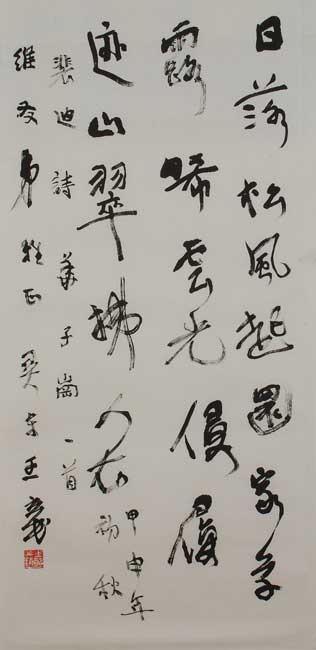 日落松風起還家草
露晞雲光侵履
迹山翠拂人衣
甲申年
初秋
裴迪詩華子崗一首
維友弟雅正